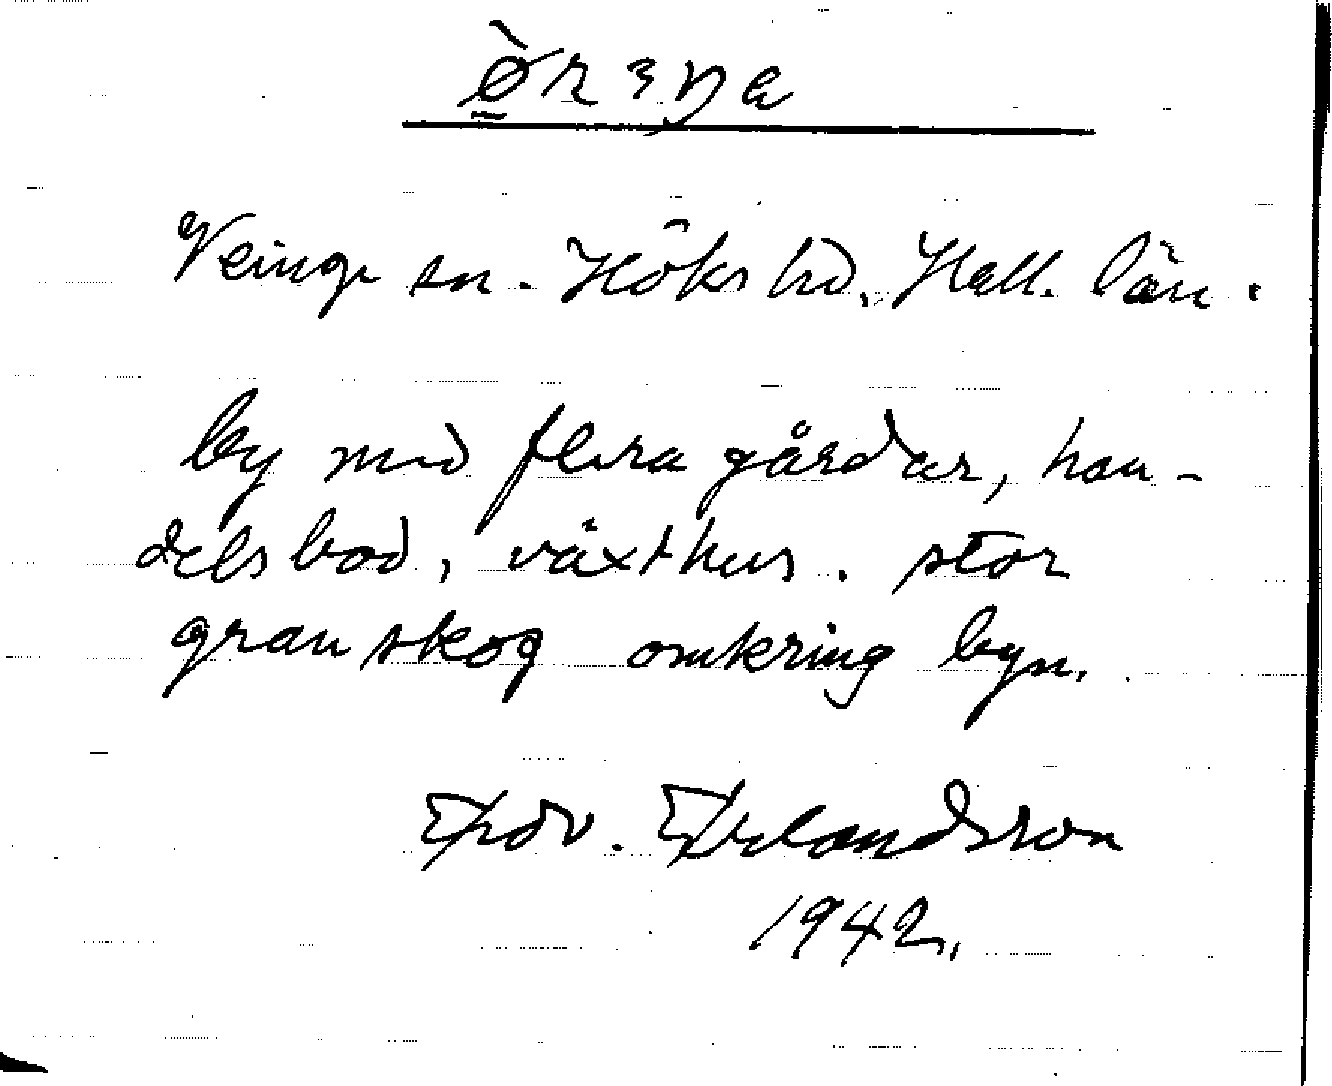 Veinge sn. Höks hd. Hall. län.
by med flera gårdar, han-
delsbod, växthus. stor
granskog omkring byn.
Edv. Erlandsson
1942.